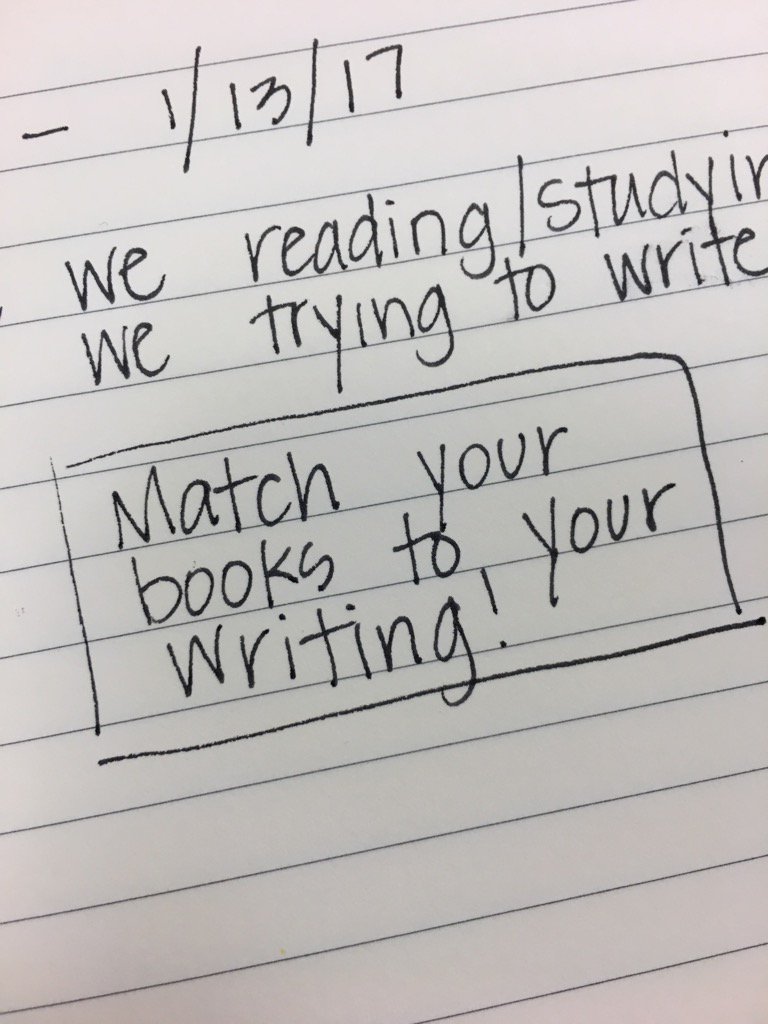 - 1/13/17
we reading/studyin
we trying to write
Match your
books to your
writing!